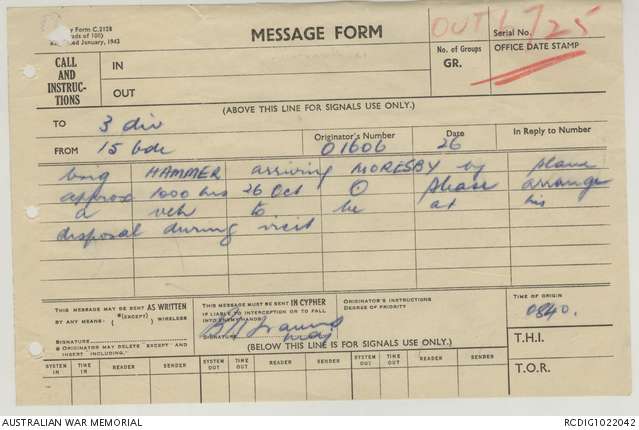 y Form C.2128
ads of 100)
ed January, 1942
MESSAGE FORM
OUT 6725
Serial No.
CALL
AND
INSTRUC-
TIONS
IN
OUT
No. of Groups
GR.
OFFICE DATE STAMP
(ABOVE THIS LINE FOR SIGNALS USE ONLY.)
TO 3 div
FROM 15 bde
Originator's Number
01606
Date
26
In Reply to Number
brig HAMMER arriving MORESBY by plane
approx 1000 hrs 26 Oct O please arrange
a veh to be at his
disposal during visit
THIS MESSAGE MAY BE SENT AS WRITTEN
BY ANY MEANS- { (EXCEPT) } WIRELESS
SIGNATURE
ORIGINATOR MAY DELETE "EXCEPT" AND
INSERT INCLUDING."
THIS MESSAGE MUST BE SENT IN CYPHER
IF LIABLE TO INTERCEPTION OR TO FALL
INTO ENEMY HANDS.
SIGNATURE
maj
ORIGINATOR'S INSTRUCTIONS
DEGREE OF PRIORITY
TIME OF ORIGIN
0840.
(BELOW THIS LINE IS FOR SIGNALS USE ONLY.)
T.H.I.
T.O.R.
SYSTEM IN
TIME IN
READER
SENDER
SYSTEM OUT
TIME OUT
READER
SENDER
SYSTEM OUT
TIME OUT
READER
SENDER
AUSTRALIAN WAR MEMORIAL
RCDIG1022042